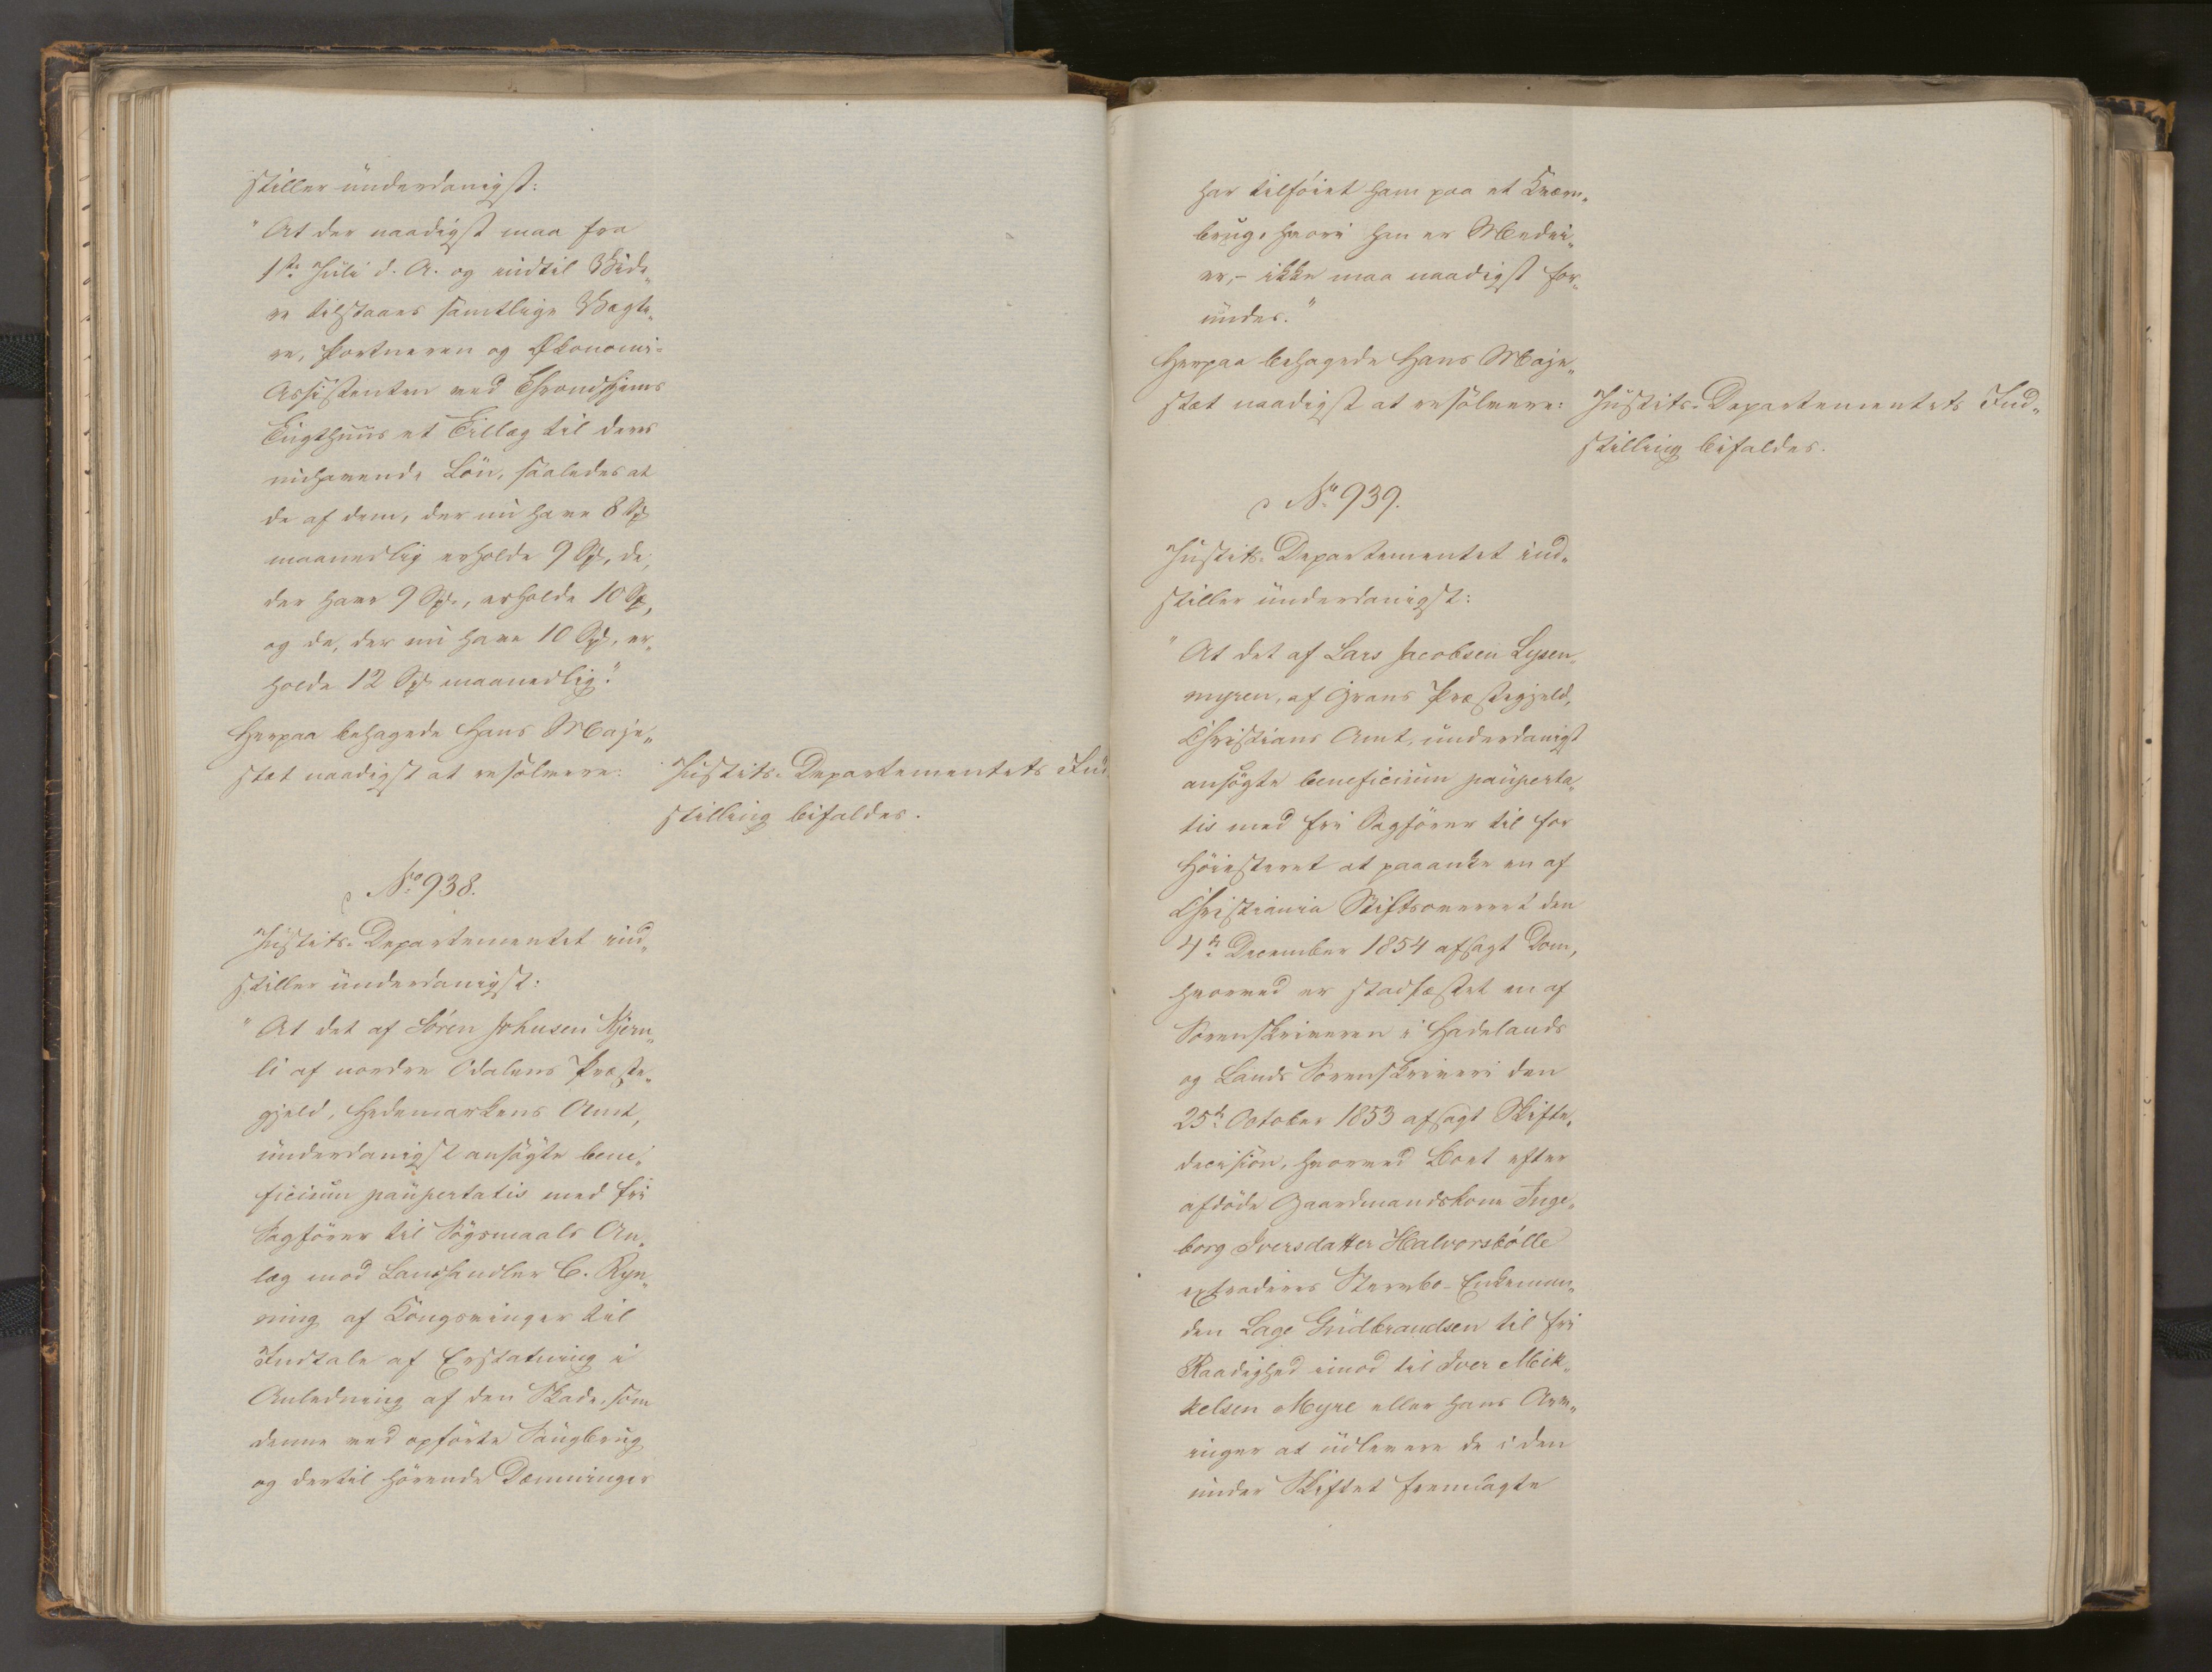 stiller underdanigst:
"At der naadigst maa fra
1ste Juli d. A. og indtil Vide„
re tilstaaes samtlige Vagte„
re, Portneren og Økonomi-
Assistenten ved Throndhjems
Tugthuus et Tillæg til deres
nuhavende Lön, saaledes at
de af dem, der nu have 8 Spd
maanedlig erholde 9 Spd, de,
der have 9 Spd., erholde 10 Spd,
og de, der nu have 10 Spd, er„
holde 12 Spd maanedlig."
Herpaa behagede Hans Maje„
stæt naadigst at resolvere:
Justits-Departementets Ind„
stilling bifaldes.
No 938.
Justits-Departementet ind„
stiller underdanigst:
"At det af Sören Johnsen Kjern„
li af nordre Odalens Præste„
gjeld, Hedemarkens Amt,
underdanigst ansögte bene„
ficium paupertatis med fri
Sagförer til Sögsmaals An„
læg mod Landhandler C. Ryn„
ning af Kongsvinger til
Indtale af Erstatning i
Anledning af den Skade, som
denne ved opförte Saugbrug
og dertil hörende Dæmninger
har tilföiet ham paa et Kværn„
brug, hvori han er Medei„
er, - ikke maa naadigst for„
undes."
Herpaa behagede Hans Maje„
stæt naadigst at resolvere:
Justits-Departementets Ind„
stilling bifaldes.
No 939.
Justits-Departementet ind„
stiller underdanigst:
"At det af Lars Jacobsen Lysen„
myren, af Grans Præstegjeld,
Christians Amt, underdanigst
ansögte beneficium pauperta„
tis med fri Sagförer til for
Höiesteret at paaanke en af
Christiania Stiftsoverret den
4de December 1854 afsagt Dom,
hvorved er stadfæstet en af
Sorenskriveren i Hadelands
og Lands Sorenskriveri den
25de October 1853 afsagt Skifte„
decision, hvorved Boet efter
afdöde Gaardmandskone Inge„
borg Iversdatter Halvorsbölle
extraderes Stervbo-Enkeman„
den Lage Gudbrandsen til fri
Raadighed imod til Iver Mik„
kelsen Myre eller hans Arv„
inger at udlevere de i den
under Skiftet fremlagte